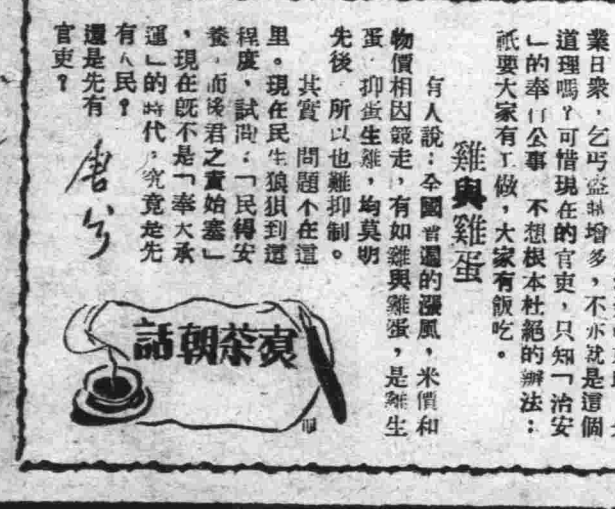 業日衆，乞丐盜賊增多，不亦就是這個
道理嗎？可惜現在的官吏，只知「治安
」的奉行公事 不想根本杜絕的辦法：
祇要大家有工做，大家有飯吃。
雞與雞蛋
有人說：全國普遍的漲風，米價和
物價相因競走，有如雞與雞蛋，是雞生
蛋，抑蛋生雞，均莫明
先後，所以也難抑制。
其實，問題不在這
里。現在民生狼狽到這
程度，試問：「民得安
養，而後君之責始塞」
，現在旣不是「奉天承
運」的時代，究竟是先
有人民？
還是先有
官吏？
話朝茶